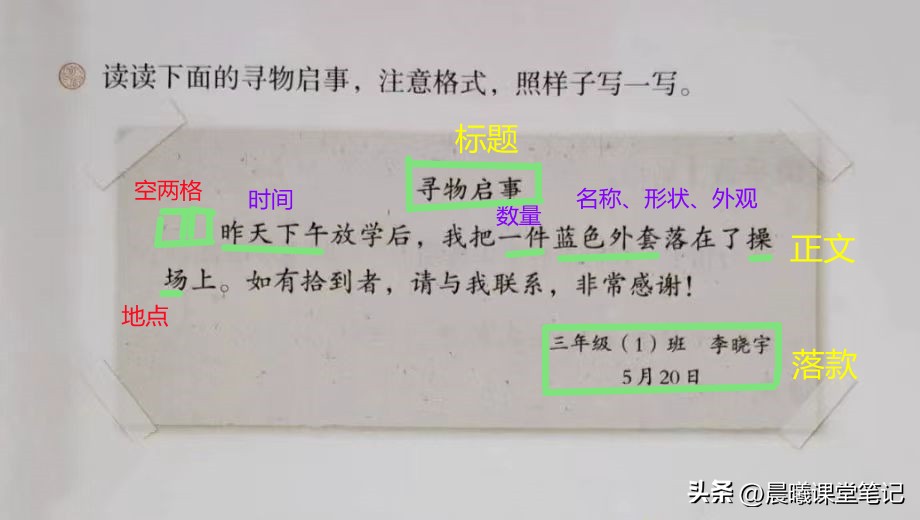 读读下面的寻物启事，注意格式，照样子写一写。
标题
寻物启事
空两格
时间
数量
名称、形状、外观
昨天下午放学后，我把一件蓝色外套落在了操
正文
场上。如有拾到者，请与我联系，非常感谢！
地点
三年级（1）班 李晓宇
5月20日
落款
头条 @晨曦课堂笔记